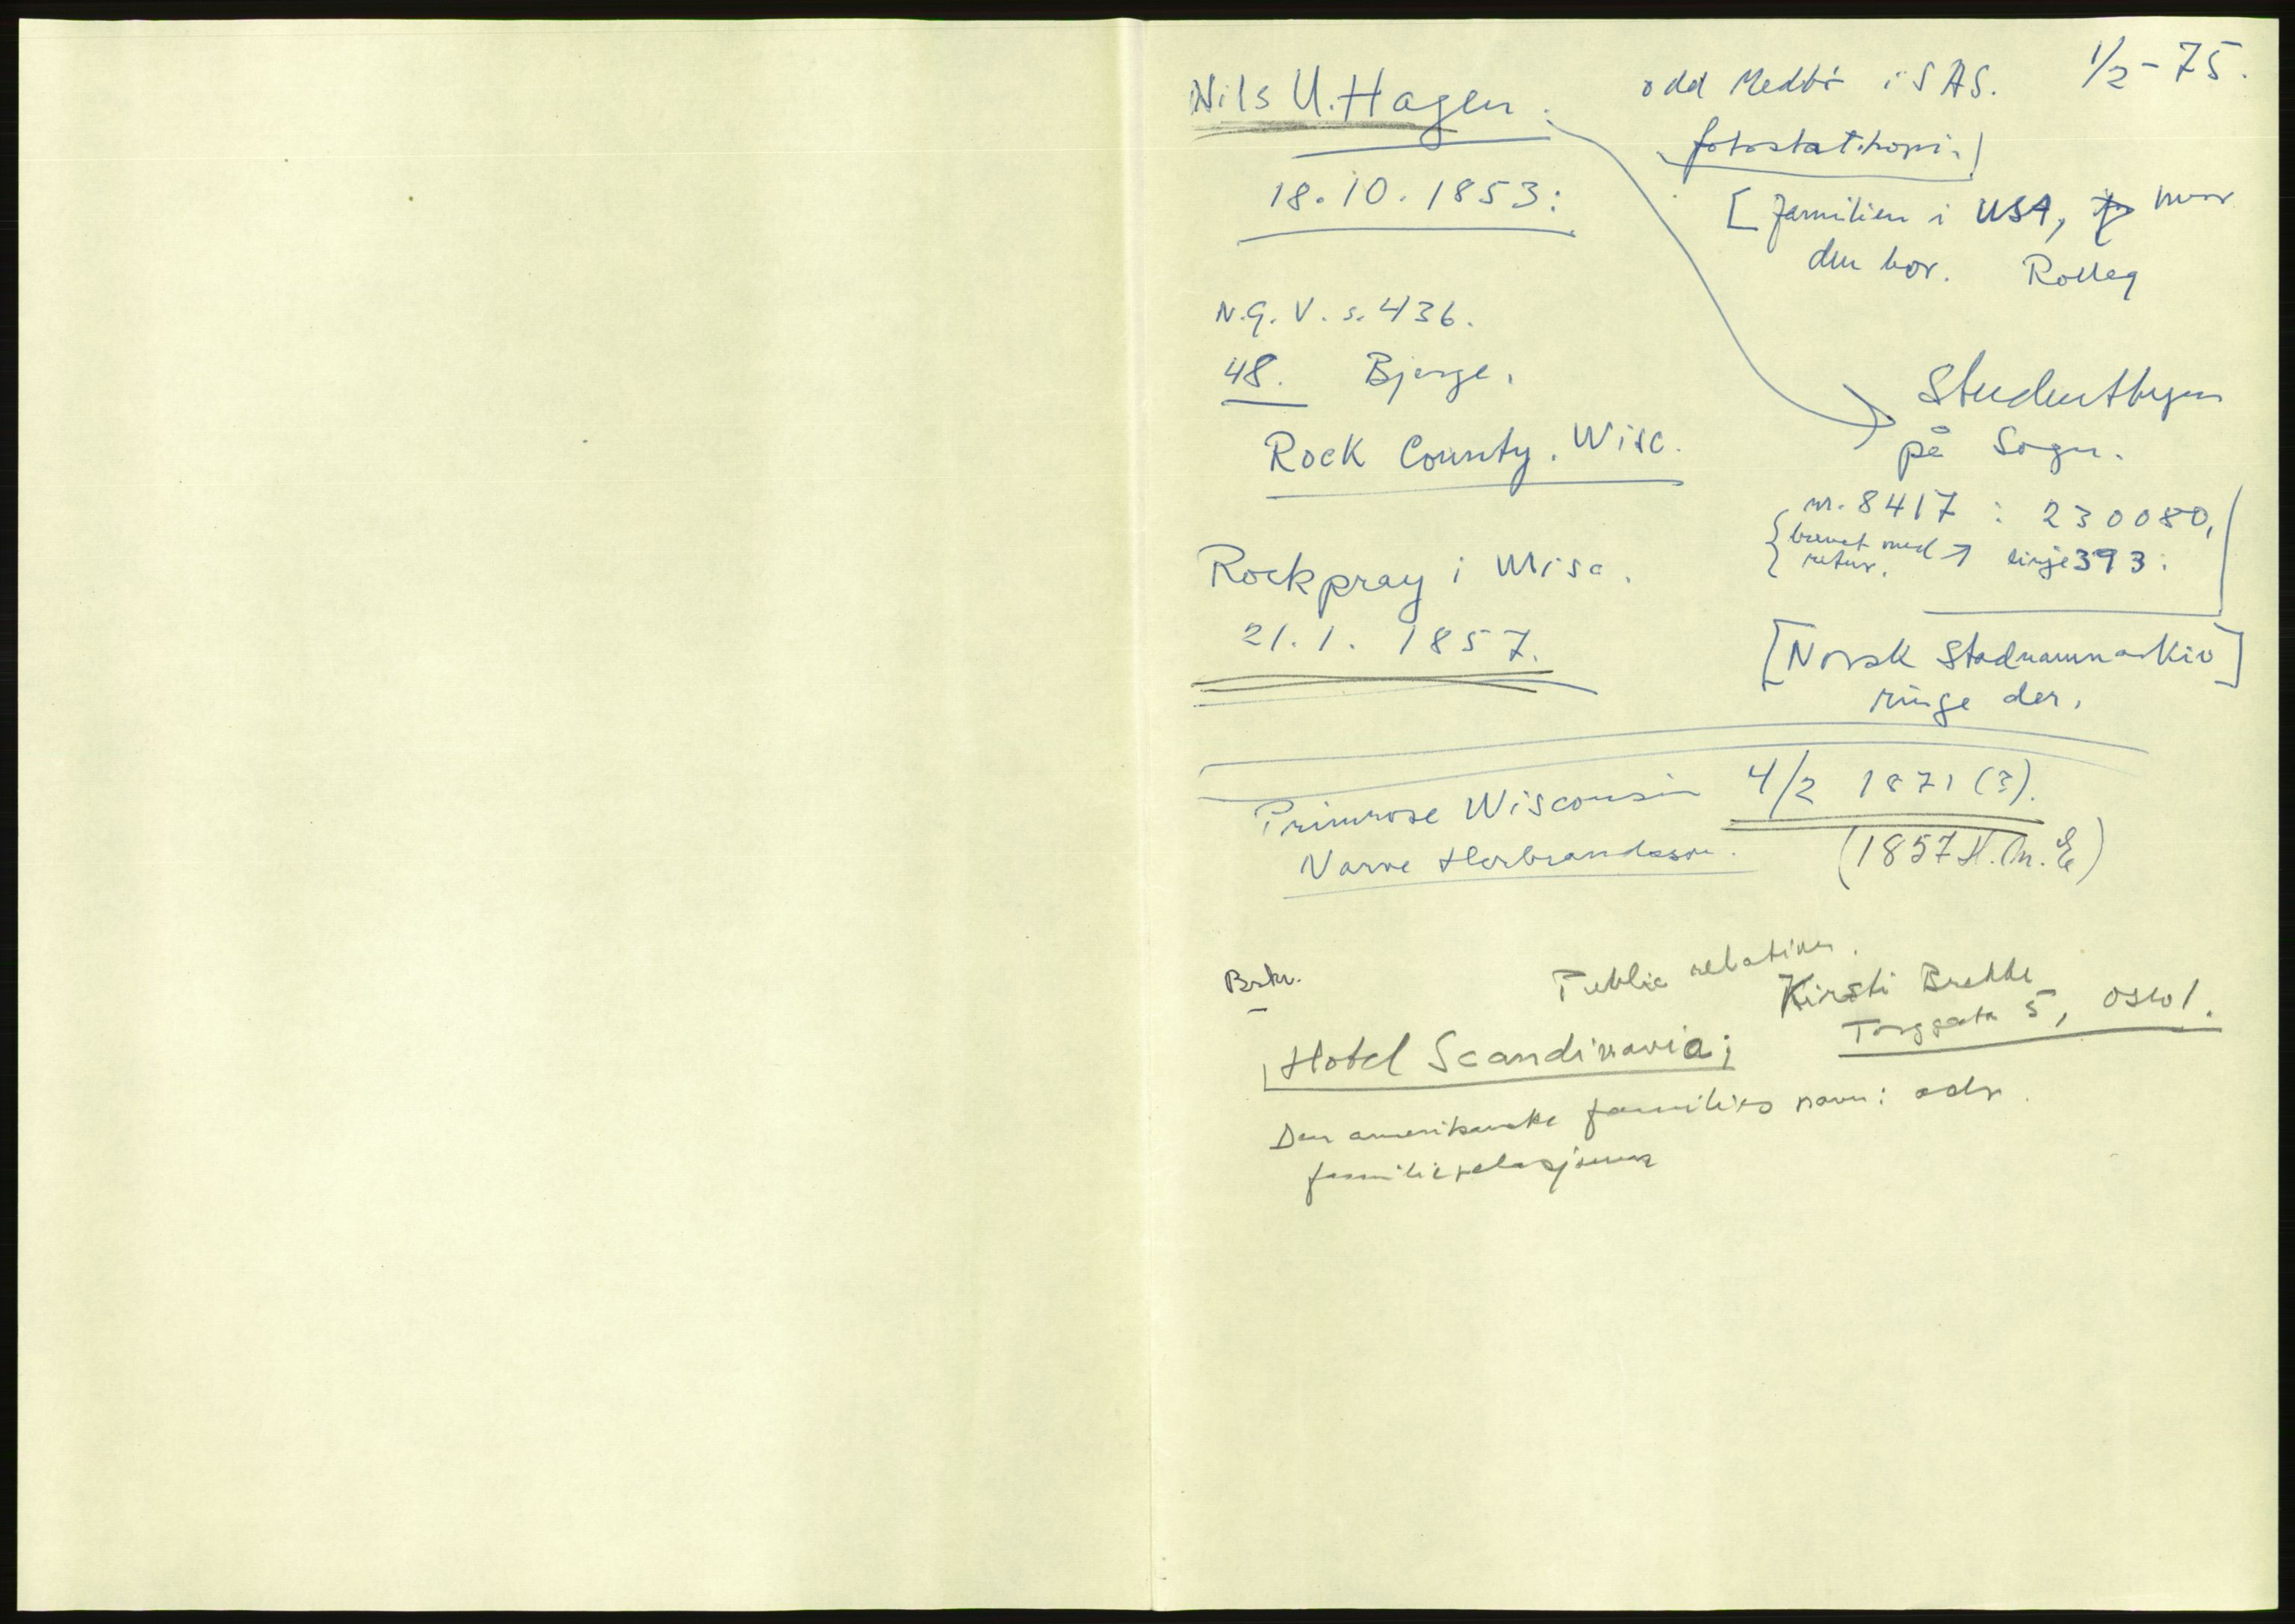 Nils U. Hagen.
Odd Medbö i SAS. 1/2-75.
fotostatkopi.
18.10.1853:
[familien i USA, hvor
den bor. Rolleg
N.G. V. s. 436.
48. Bjerge.
Studentbyen
på Sogn.
Rock County. Wisc.
nr. 8417 : 230080,
brevet med → linje 393:
retur.
Rockpray i Wisc.
21.1. 1857.
[Norsk Stadnamnarkiv]
ringe der.
Primrose Wisconsin 4/2 1871 (?).
Narve Herbrandsson. (1857 H.M.E)
Public relation.
Brkr.
Kirsti Brekke
Torggata 5, Oslo 1.
Hotel Scandinavia;
Den amerikanske families navn: adr.
familierelasjoner